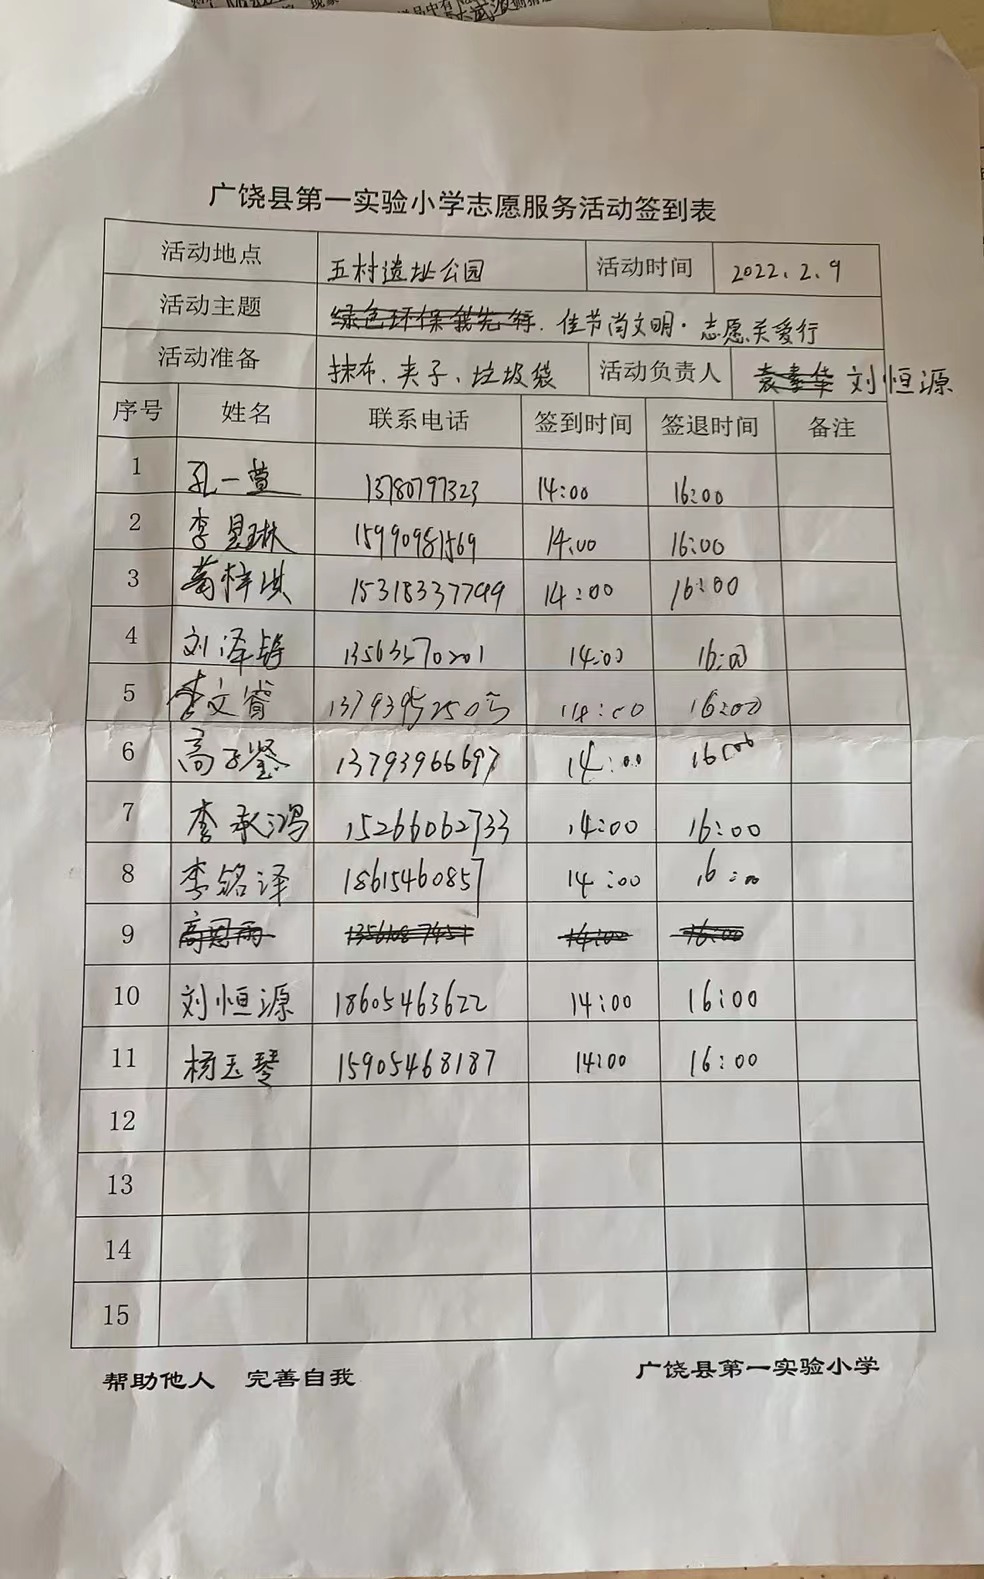 广饶县第一实验小学志愿服务活动签到表
活动地点 五村遗址公园 活动时间 2022.2.9
活动主题 绿色环保我先行. 佳节尚文明·志愿关爱行
活动准备 抹布、夹子、垃圾袋 活动负责人 刘恒源
序号 姓名 联系电话 签到时间 签退时间 备注
1 孔一萱 13780797323 14:00 16:00
2 李昱琳 15990981569 14:00 16:00
3 梓淇 15318337799 14:00 16:00
4 刘泽 13563570201 14:00 16:00
5 李文睿 14:00 16:00
6 高子鉴 13793966697 14:00 16:00
7 李承鸿 15266062733 14:00 16:00
8 李铭泽 18615460857 14:00 16:00
9 14:00 16:00
10 刘恒源 18605463622 14:00 16:00
11 杨玉琴 15905468187 14:00 16:00
12
13
14
15
帮助他人 完善自我 广饶县第一实验小学